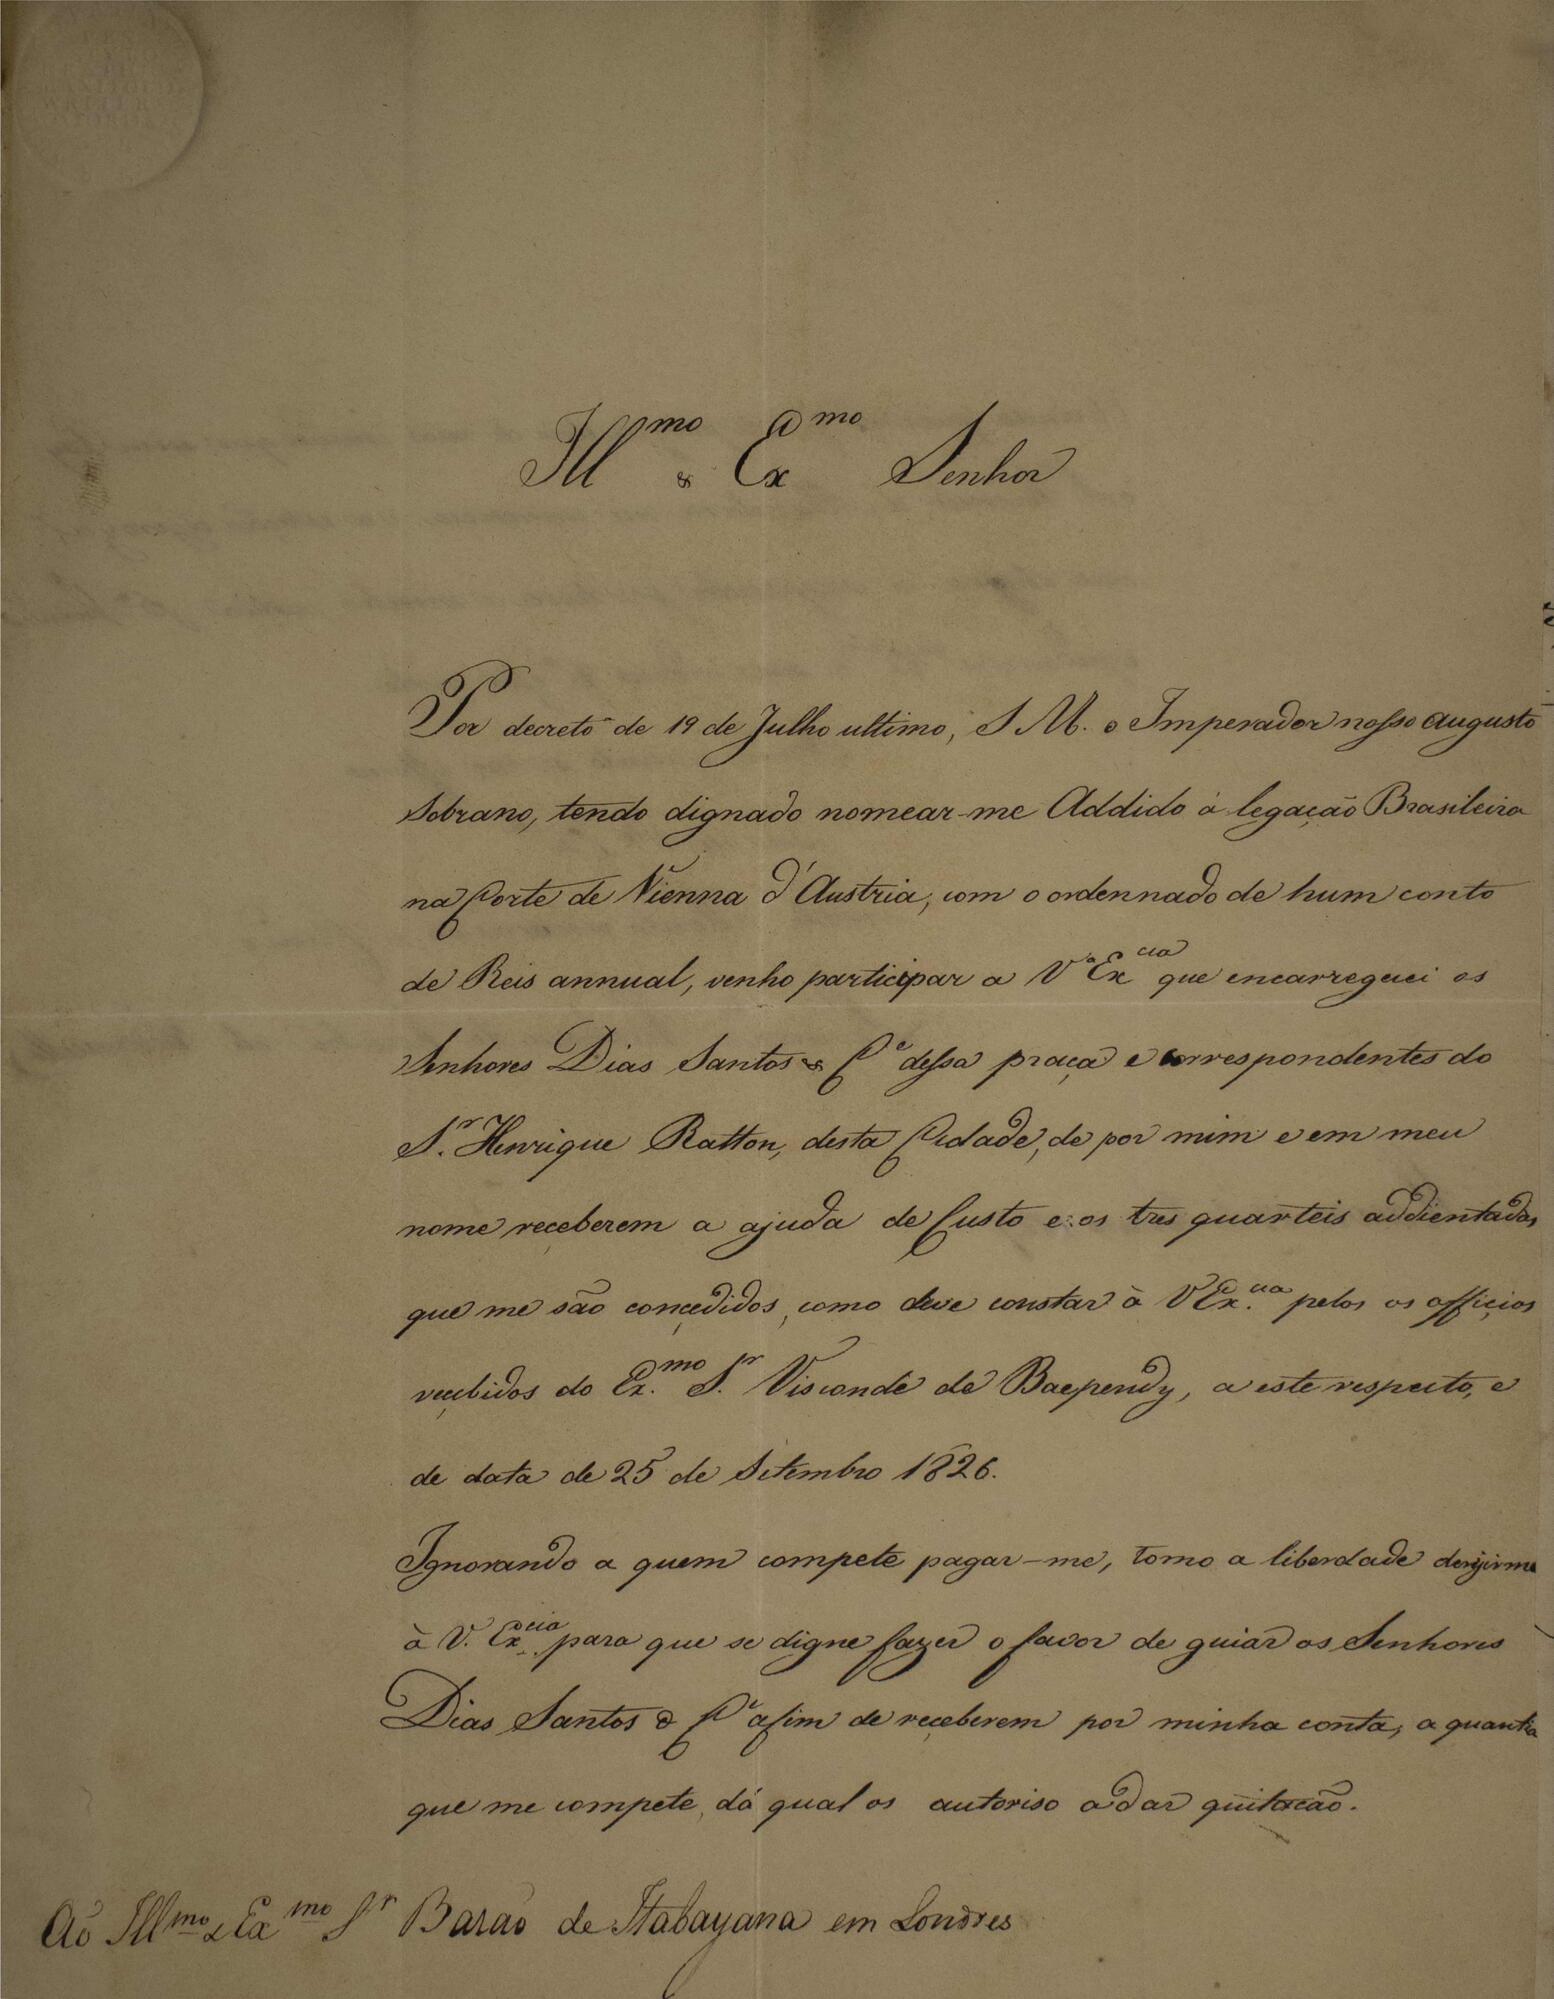 Ill.mo & Ex.mo Senhor
Por decreto de 19 de Julho ultimo, S M. o Imperador nosso augusto
Sobrano, tendo dignado nomear-me Addido á legação Brasileira
na Corte de Vienna d'Austria, com o ordennado de hum conto
de Reis annual, venho participar a Vª Ex.cia que encarreguei os
Senhores Dias Santos & Cª dessa praça e correspondentes do
S.r Henrique Ratton, desta Cidade, de por mim e em meu
nome reçeberem a ajuda de Custo e os tres quarteis addientados
que me são conçedidos, como deve constar à V Ex.cia pelos os offiçios
reçebidos do Ex.mo S.r Visconde de Baependy, a este respeito, e
de data de 25 de Setembro 1826.
Ignorando a quem compete pagar-me, tomo a liberdade derijirme
à V. Ex.cia para que se digne fazer o favor de guiar os Senhores
Dias Santos & Cª afim de reçeberem por minha conta, a quantia
que me compete, dá qual os autoriso a dar quitacão.
Ao Ill.mo & Ex.mo S.r Barão de Itabayana em Londres